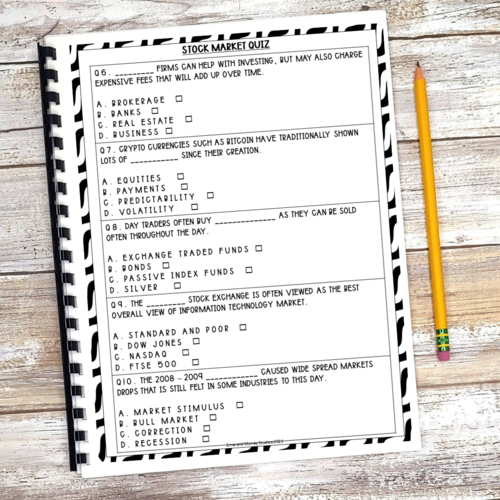 STOCK MARKET QUIZ
Q6. _________ FIRMS CAN HELP WITH INVESTING, BUT MAY ALSO CHARGE
EXPENSIVE FEES THAT WILL ADD UP OVER TIME.
A. BROKERAGE ☐
B. BANKS ☐
C. REAL ESTATE ☐
D. BUSINESS ☐
Q7. CRYPTO CURRENCIES SUCH AS BITCOIN HAVE TRADITIONALLY SHOWN
LOTS OF ___________ SINCE THEIR CREATION.
A. EQUITIES ☐
B. PAYMENTS ☐
C. PREDICTABILITY ☐
D. VOLATILITY ☐
Q8. DAY TRADERS OFTEN BUY ______________ AS THEY CAN BE SOLD
OFTEN THROUGHOUT THE DAY.
A. EXCHANGE TRADED FUNDS ☐
B. BONDS ☐
C. PASSIVE INDEX FUNDS ☐
D. SILVER ☐
Q9. THE _________ STOCK EXCHANGE IS OFTEN VIEWED AS THE BEST
OVERALL VIEW OF INFORMATION TECHNOLOGY MARKET.
A. STANDARD AND POOR ☐
B. DOW JONES ☐
C. NASDAQ ☐
D. FTSE 500 ☐
Q10. THE 2008 – 2009 ____________ CAUSED WIDE SPREAD MARKETS
DROPS THAT IS STILL FELT IN SOME INDUSTRIES TO THIS DAY.
A. MARKET STIMULUS ☐
B. BULL MARKET ☐
C. CORRECTION ☐
D. RECESSION ☐